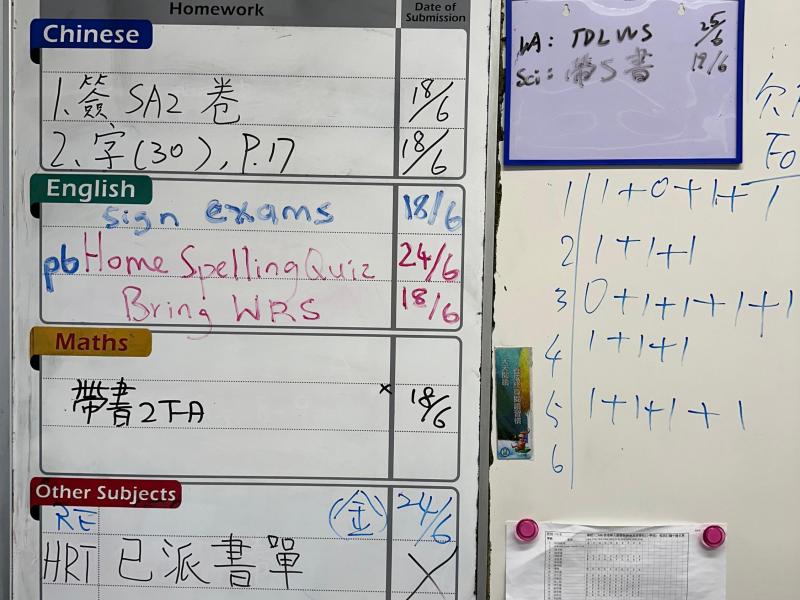 Homework
Date of Submission
Chinese
1. 簽 SA2 卷 18/6
2. 字(30), P.17 18/6
English
sign exams 18/6
p6 Home Spelling Quiz 24/6
Bring WRS 18/6
Maths
帶書2下A × 18/6
Other Subjects
RE (金) 24/6
HRT 已派書單 X
: TDLWS 25/6
Sci: 帶5書 19/6
欠
Fo
1 1+0+1+1
2 1+1+1
3 0+1+1+1+1
4 1+1+1
5 1+1+1+1
6